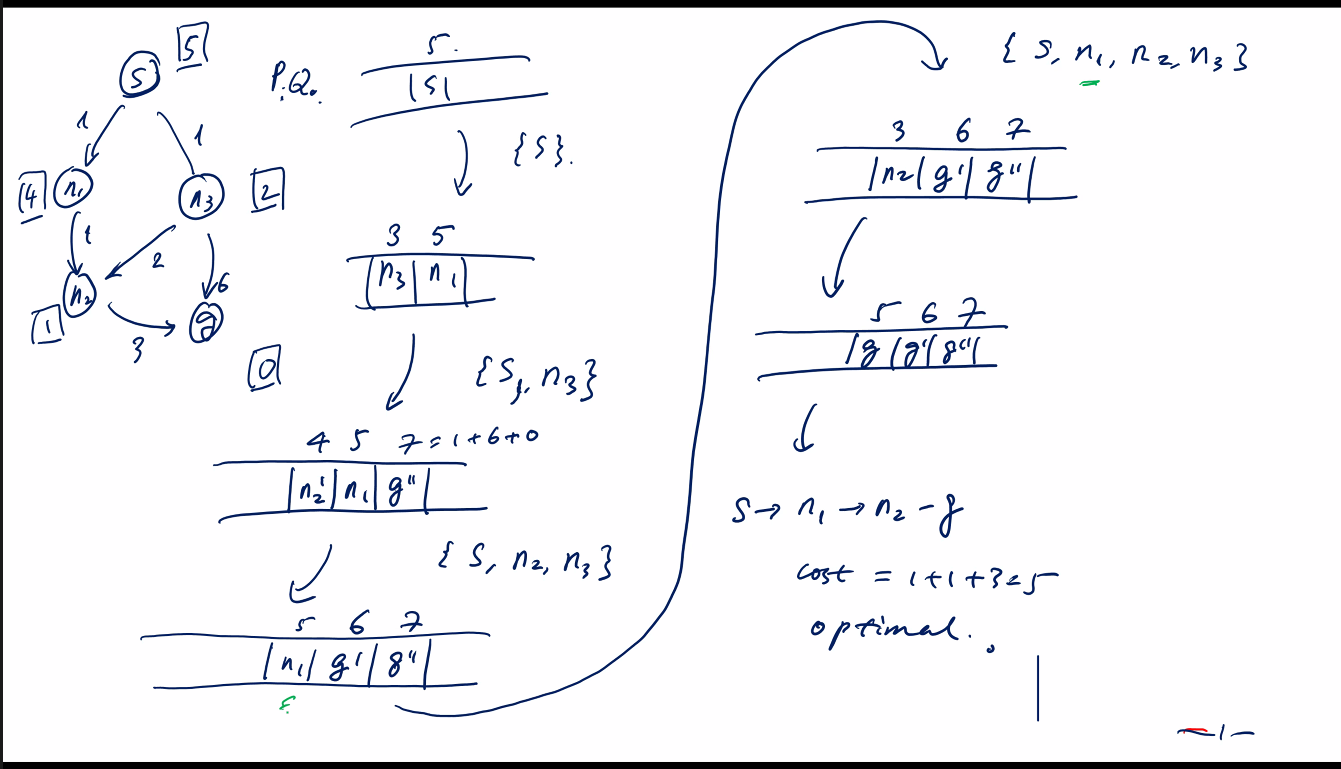 S 5
1 1
4 n₁ n₃ 2
1 2 6
n₂ g
1 3
0
P.Q.
5.
|S|
{S}.
3 5
|n₃| n₁|
{S, n₃}
4 5 7 = 1+6+0
|n₂'| n₁| g''|
{S, n₂, n₃}
5 6 7
|n₁| g'| g''|
{S, n₁, n₂, n₃}
3 6 7
|n₂| g'| g''|
5 6 7
|g |g'| g''|
S → n₁ → n₂ - g
cost = 1+1+3=5
optimal.